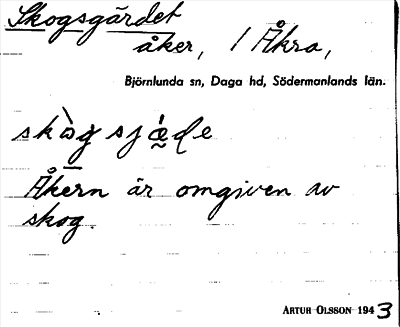 Skogsgärdet
åker, 1 Åkra,
Björnlunda sn, Daga hd, Södermanlands län.
Åkern är omgiven av
skog.
ARTUR OLSSON 1943